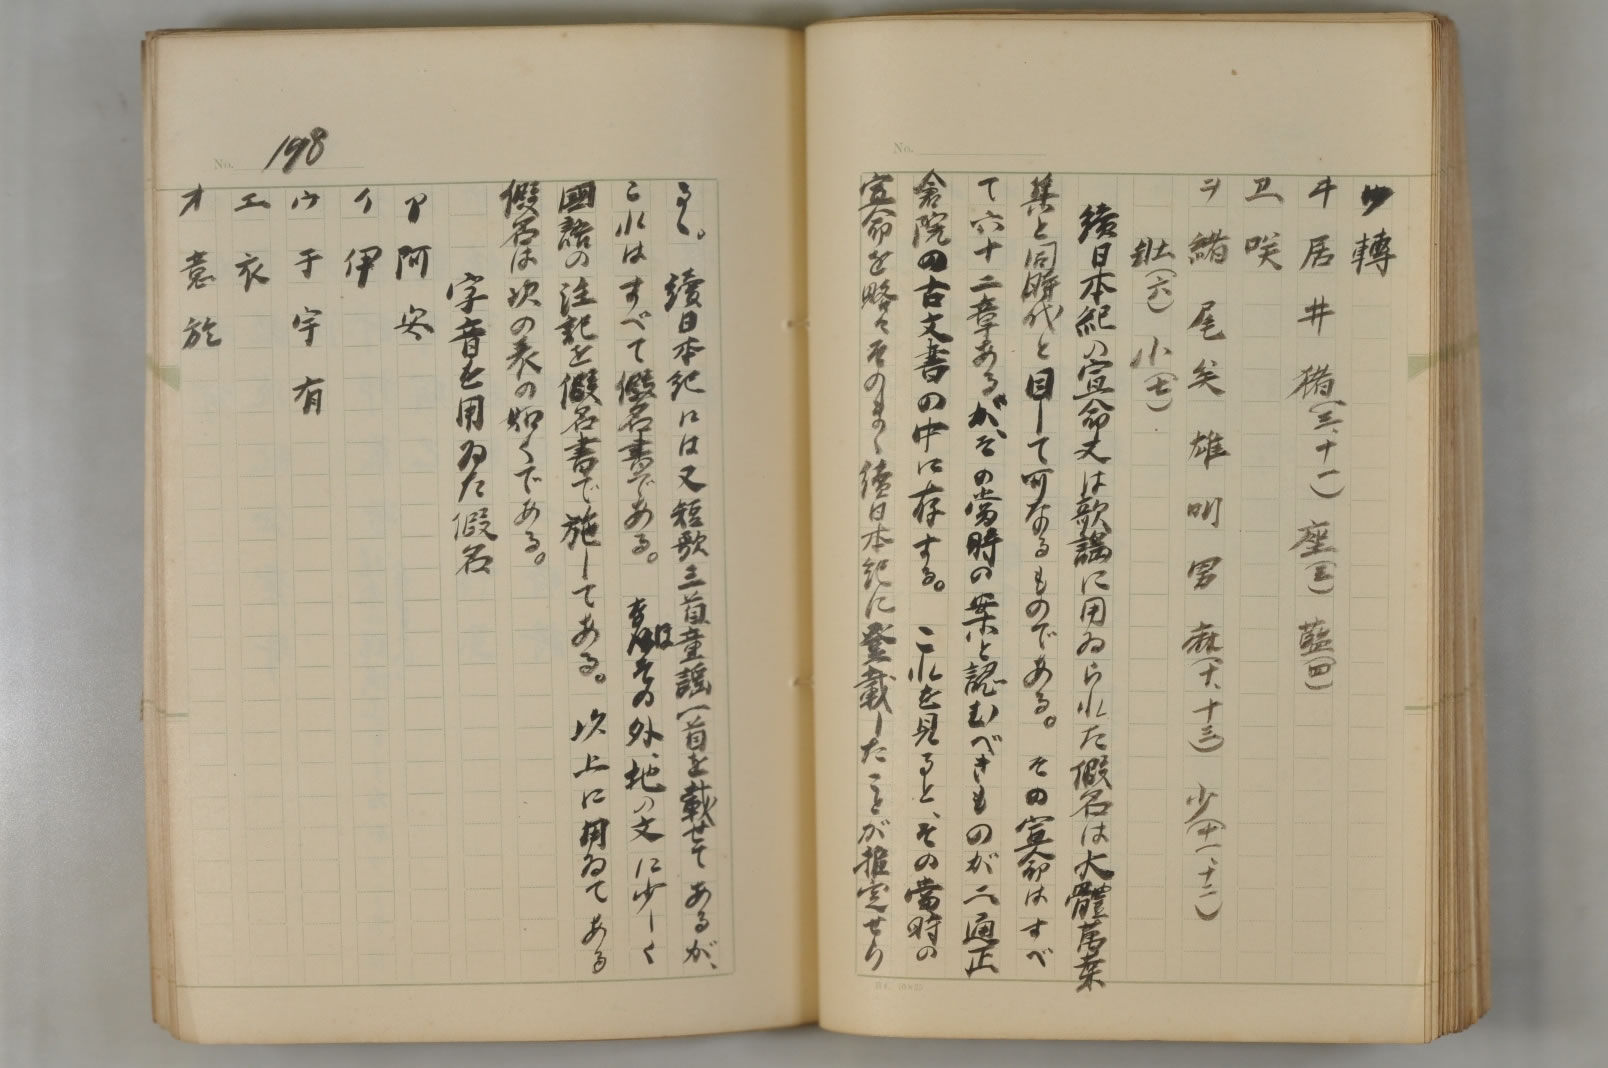 No.
ウ 轉
ヰ 居 井 猪(三、十一) 座(三) 藍(四)
ヱ 咲
ヲ 緒 尾 矣 雄 叫 男 麻(十、十三) 少(十一、十二)
(六) 小(七)
續日本紀の宣命文は歌謠に用ゐられた假名は大體萬葉
集と同時代と目して可なるものである。その宣命はすべ
て六十二章あるが、その當時の案と認むべきものが二通正
倉院の古文書の中に存する。これを見ると、その當時の
宣命を略々そのまゝ續日本紀に登載したことが推定せら
No. 198
るゝ。續日本紀には又短歌三首童謠一首を載せてあるが、
これはすべて假名書である。その外、地の文に少しく
國語の注記を假名書で施してある。以上に用ゐてある
假名は次の表の如くである。
字音を用ゐた假名
ア 阿 安
イ 伊
ウ 于 宇 有
エ 衣
オ 意 於